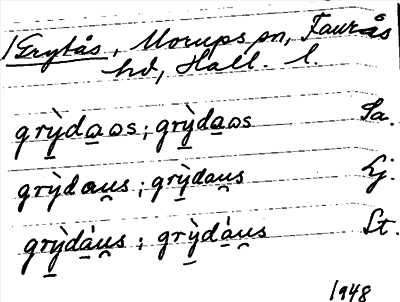 /Grytås, Morups sn, Faurås
hd, Hall. l.
grỳ̱da̱ɷs; grỳ̱da̱ɷs Sa.
grỳdau̱s; grỳ̱dau̱s Lj.
grỳ̱dá̱u̱s; grỳ̱dá̱u̱s St.
1948